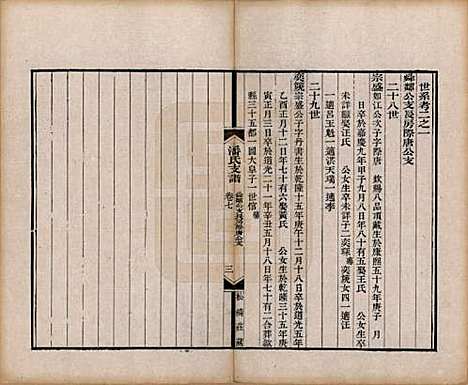 世系考二之一
舜鄰公支長房際唐公支
二十八世
宗盛如江公次子字際唐 欽賜八品頂戴生於康熙五十九年庚子 月
日卒於嘉慶九年甲子九月八日年八十有五娶王氏 公女生卒
未詳繼娶汪氏 公女生卒未詳子二奕琢奕統女四一適汪
一適呂王魁一適洪天瑞一適李
二十九世
奕統宗盛公子字丹書生於乾隆十五年庚午十二月十八日卒於道光五年
乙酉正月十二日年七十有六娶黃氏 公女生於乾隆三十五年庚
寅正月三日卒於道光二十一年辛丑五月十八日年七十有二合葬歙
縣三十五都一圖大皇子一世信
潘氏支譜
卷七
舜鄰公支長房際唐公支
三
松鱗莊藏